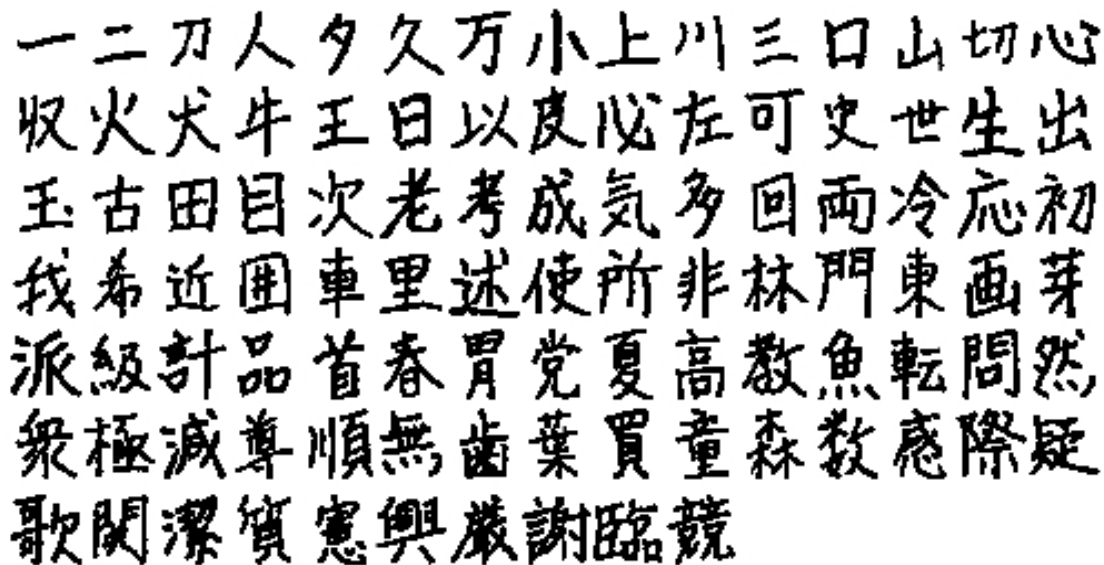 一二刀人夕久万小上川三口山切心
収火犬牛王日以皮必左可史世生出
玉古田目次老考成気多回両冷応初
我希近囲車里述使所非林門東画芽
派級計品首春胃党夏高教魚転問然
衆極減尊順無歯葉買童森数感際疑
歌関潔質憲興厳謝臨競